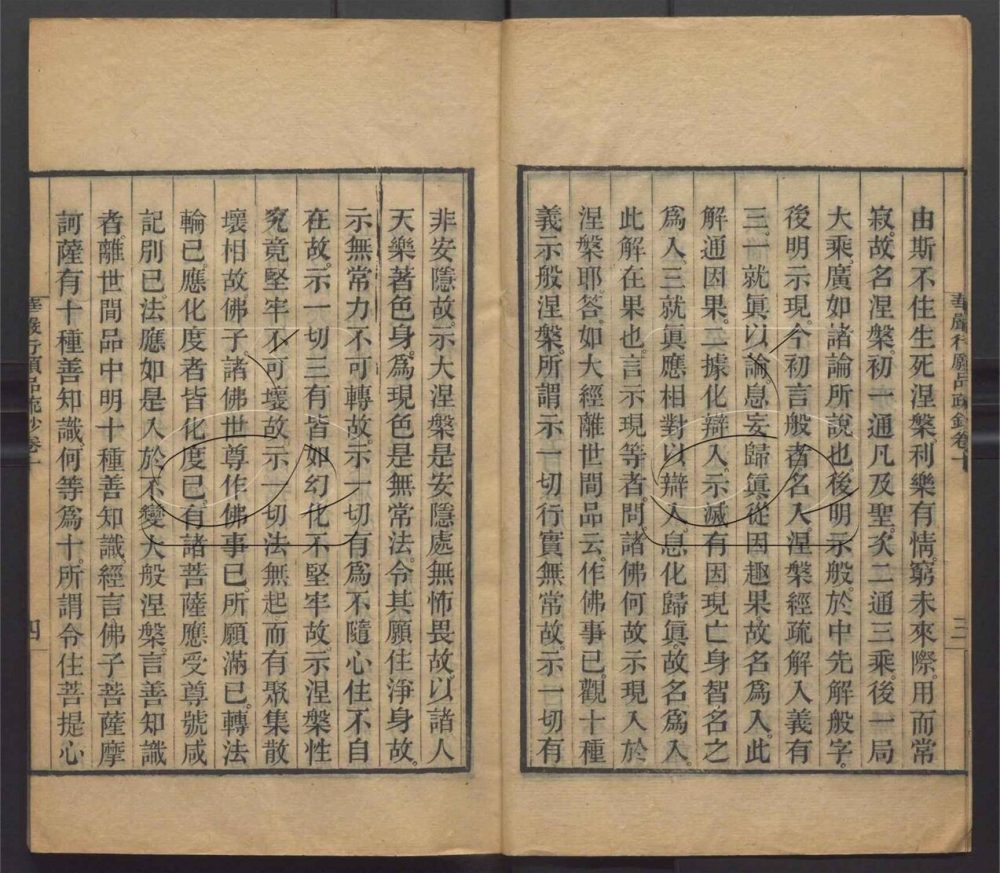 華嚴行願品疏鈔卷十
三
由斯不住生死涅槃利樂有情。窮未來際。用而常
寂。故名涅槃。初一通凡及聖。次二通三乘。後一局
大乘。廣如諸論所說也。後明示般。於中先解般字。
後明示現。今初言般者。名入。涅槃經疏解入義有
三。一就眞。以論。息妄歸眞。從因趣果。故名爲入。此
解通因果。二據化辯入。示滅有因。現亡身智。名之
爲入。三就眞應相對以辯入。息化歸眞。故名爲入。
此解在果也。言示現等者。問。諸佛何故示現入於
涅槃耶。答。如大經離世間品云。作佛事已。觀十種
義示般涅槃。所謂示一切行實無常故。示一切有
非安隱故。示大涅槃是安隱處無怖畏故。以諸人
天樂著色身。爲現色是無常法。令其願住淨身故。
示無常力不可轉故。示一切有爲不隨心住不自
在故。示一切三有皆如幻化不堅牢故。示涅槃性
究竟堅牢不可壞故。示一切法無起。而有聚集散
壞相故。佛子。諸佛世尊作佛事已。所願滿已。轉法
輪已。應化度者皆化度已。有諸菩薩應受尊號咸
記別已。法應如是入於不變大般涅槃。言善知識
者。離世間品中明十種善知識。經言。佛子。菩薩摩
訶薩有十種善知識。何等爲十。所謂令住菩提心
華嚴行願品疏鈔卷一
四